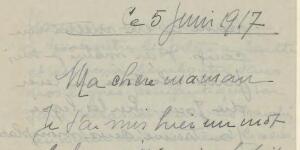 Ce 5 Juin 1917
Ma chère maman
Je t'ai mis hier un mot